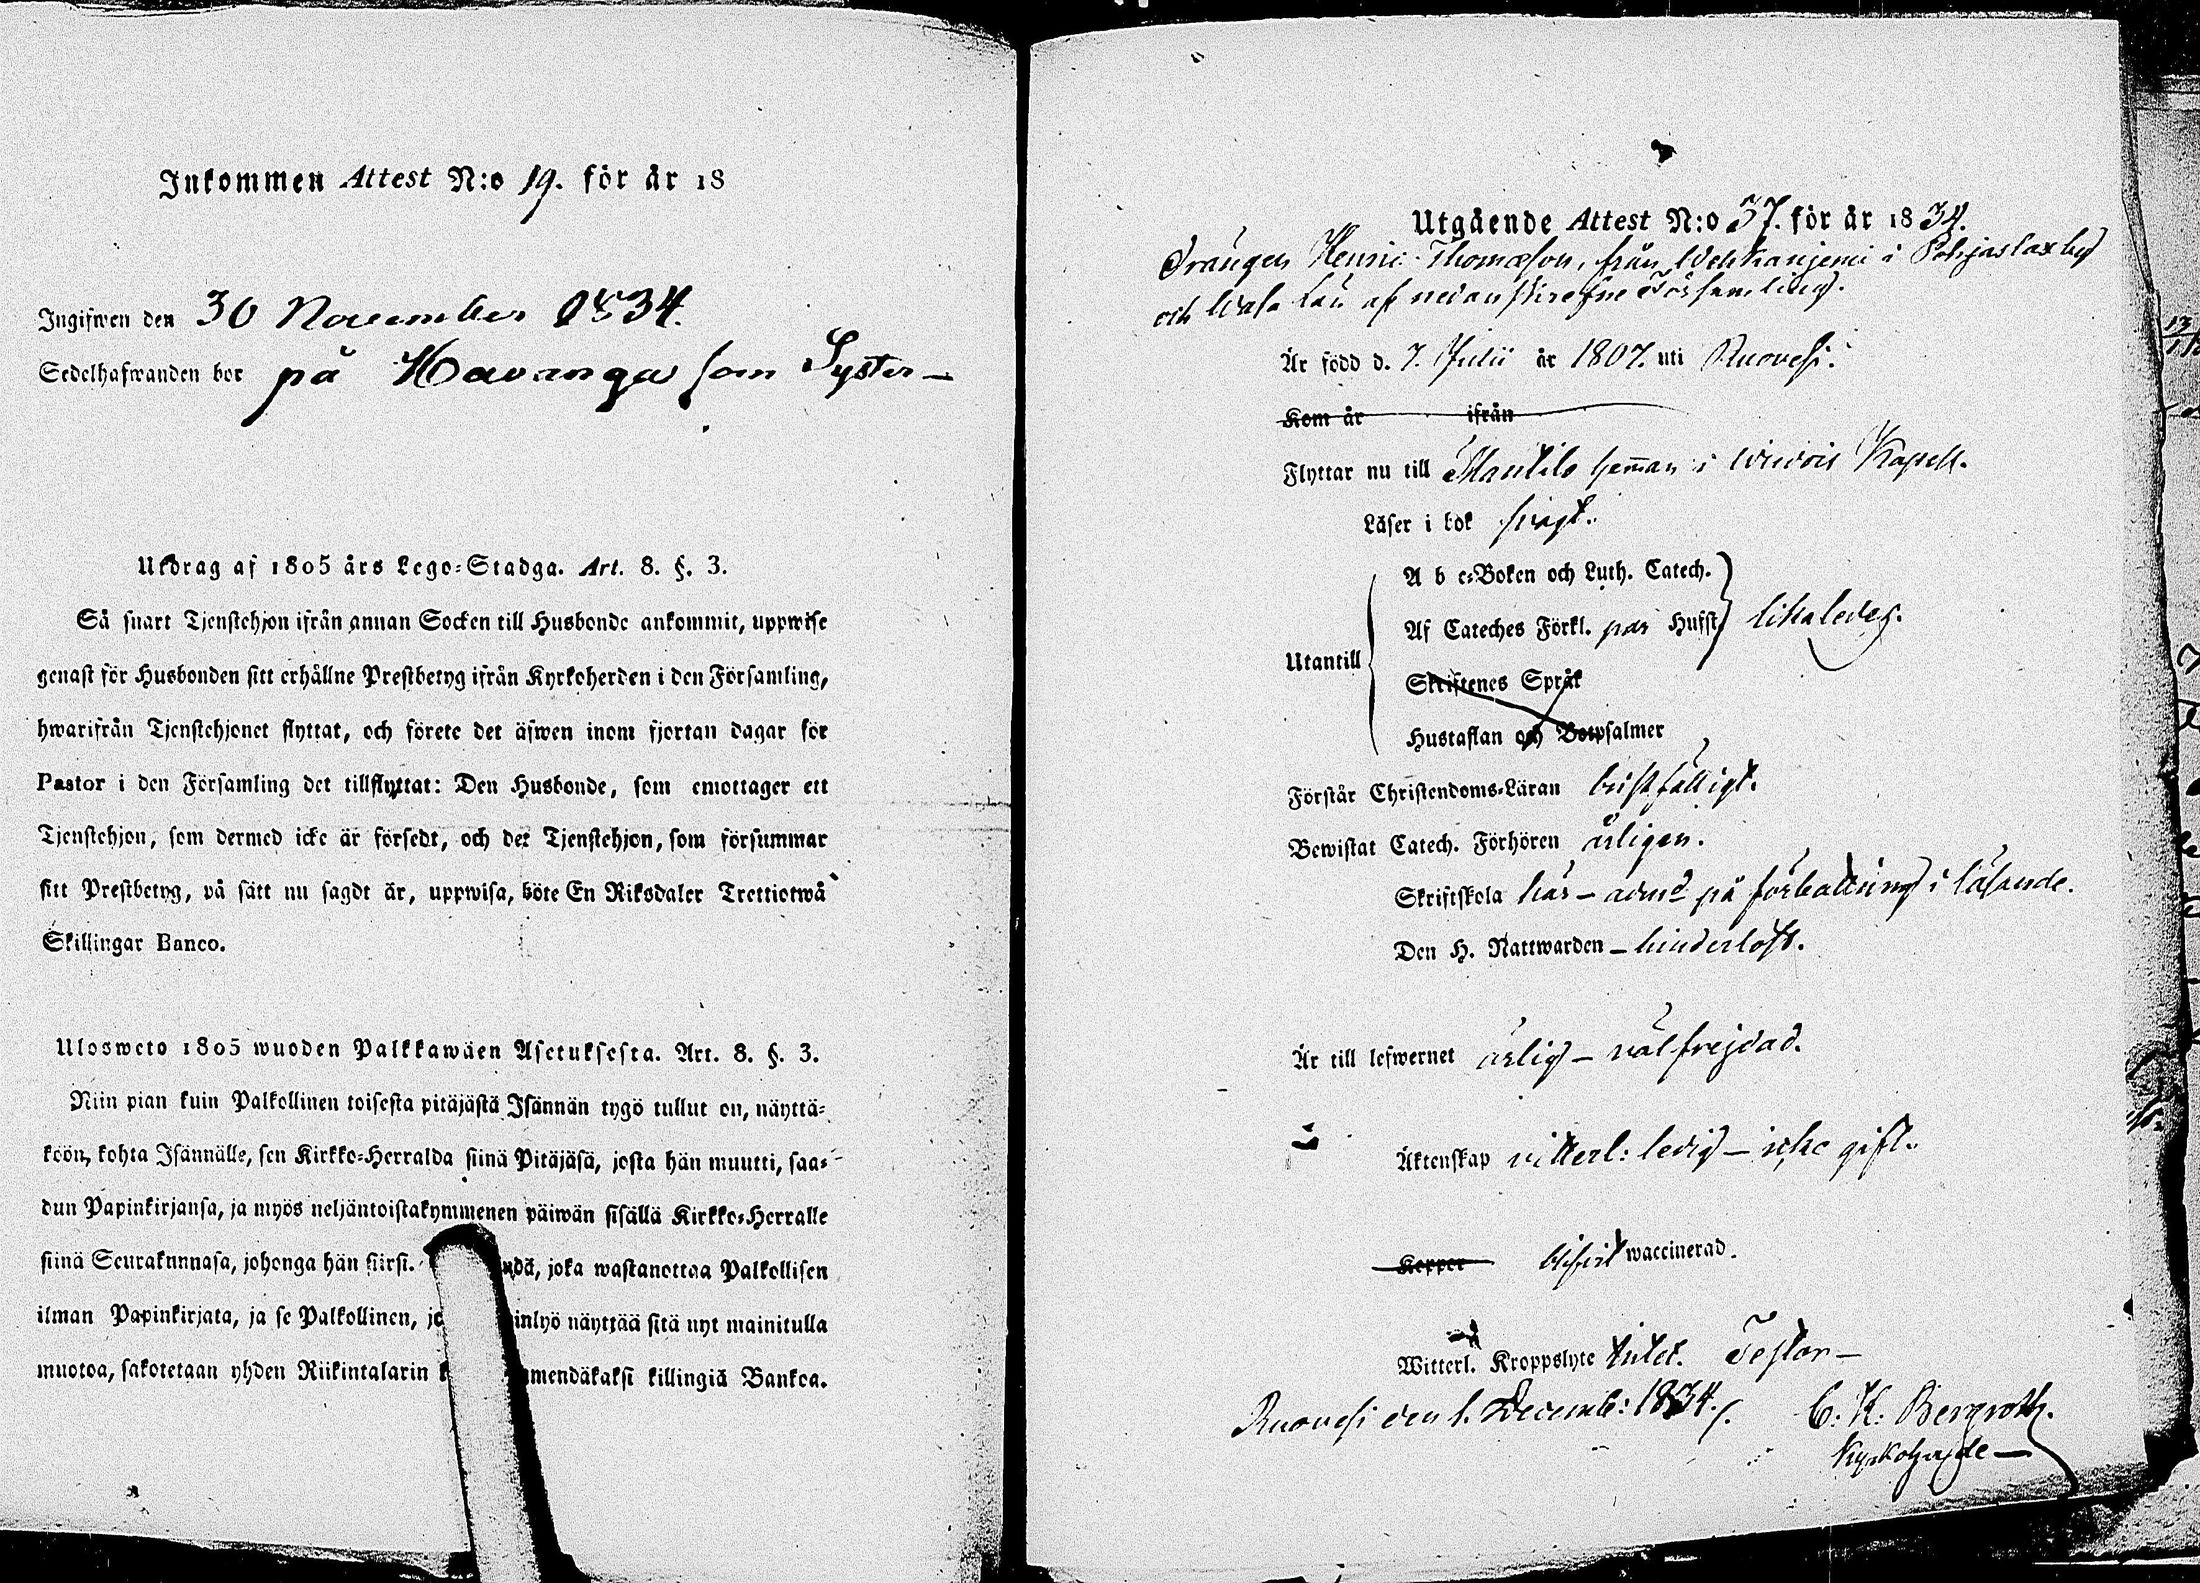 Inkommen Attest N:o 19. för år 18
Ingifwen den 30 November 1834.
Sedelhafwanden bor på Havanga som Syster –
Utdrag af 1805 års Lego-Stadga. Art. 8. §. 3.
Så snart Tjenstehjon ifrån annan Socken till Husbonde ankommit, uppwise
genast för Husbonden sitt erhållne Prestbetyg ifrån Kyrkoherden i den Församling,
hwarifrån Tjenstehjonet flyttat, och förete det äfwen inom fjortan dagar för
Pastor i den Församling det tillflyttat: Den Husbonde, som emottager ett
Tjenstehjon, som dermed icke är försedt, och det Tjenstehjon, som försummar
sitt Prestbetyg, på sätt nu sagdt är, uppwisa, böte En Riksdaler Trettiotwå
Skillingar Banco.
Ulosweto 1805 wuoden Palkkawäen Asetuksesta. Art. 8. §. 3.
Niin pian kuin Palkollinen toisesta pitäjästä Isännän tygö tullut on, näyttä-
köön, kohta Isännälle, sen Kirkko-Herralda siinä Pitäjäsä, josta hän muutti, saa-
dun Papinkirjansa, ja myös neljäntoistakymmenen päiwän sisällä Kirkko-Herralle
siinä Seurakunnasa, johonga hän siirsi. ndä, joka wastanottaa Palkollisen
ilman Papinkirjata, ja se Palkollinen, jo inlyö näyttää sitä nyt mainitulla
muotoa, sakotetaan yhden Riikintalarin k mmendäkaksi killingiä Bankoa.
Utgående Attest N:o 37. för år 1834.
Drängen Henric Thomæson, från Wehkanjemi i Pohjaslax by
och Wasa Län af nedanskrefne Församling.
Är född d. 7. Julii år 1807. uti Ruovesi.
Kom år ifrån
Flyttar nu till Mantila heman i Kapell.
Läser i bok svagt.
A b c-Boken och Luth. Catech.
Af Cateches Förkl. par Hufst. likaledes.
Utantill
Skriftenes Språk
Hustaflan och Botpsalmer
Förstår Christendoms-Läran bristfälligt.
Bewistat Catech. Förhören årligen.
Skriftskola här – på förbättring i läsande.
Den H. Nattwarden – hinderlöst.
Är till lefwernet ärlig – välfrejdad.
Äktenskap vitterl: ledig – icke gift.
Koppor blifvit waccinerad.
Witterl. Kroppslyte intet. Testor –
Ruovesi den 1. Decemb: 1834./. C. H. Bergroth.
Kyrkoherde –